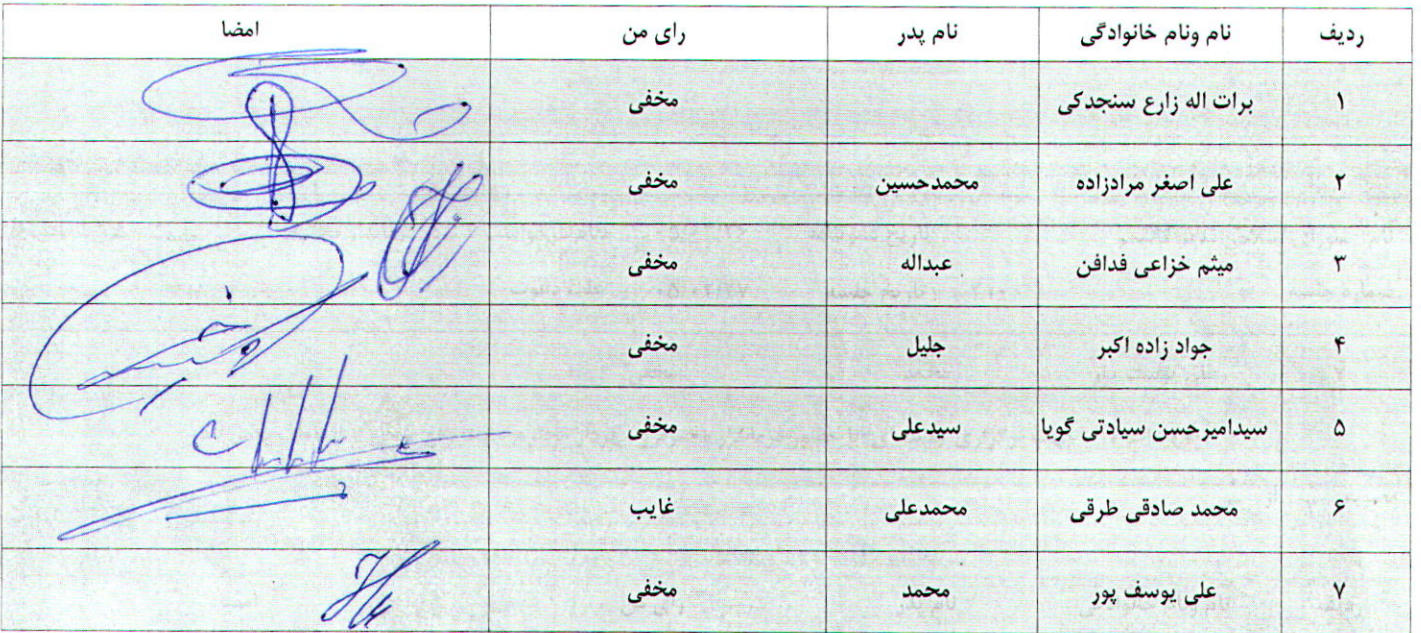 ردیف نام ونام خانوادگی نام پدر رای من امضا
۱ برات اله زارع سنجدکی مخفی
۲ علی اصغر مرادزاده محمدحسین مخفی
۳ میثم خزاعی فدافن عبداله مخفی
۴ جواد زاده اکبر جلیل مخفی
۵ سیدامیرحسن سیادتی گویا سیدعلی مخفی
۶ محمد صادقی طرقی محمدعلی غایب
۷ علی یوسف پور محمد مخفی